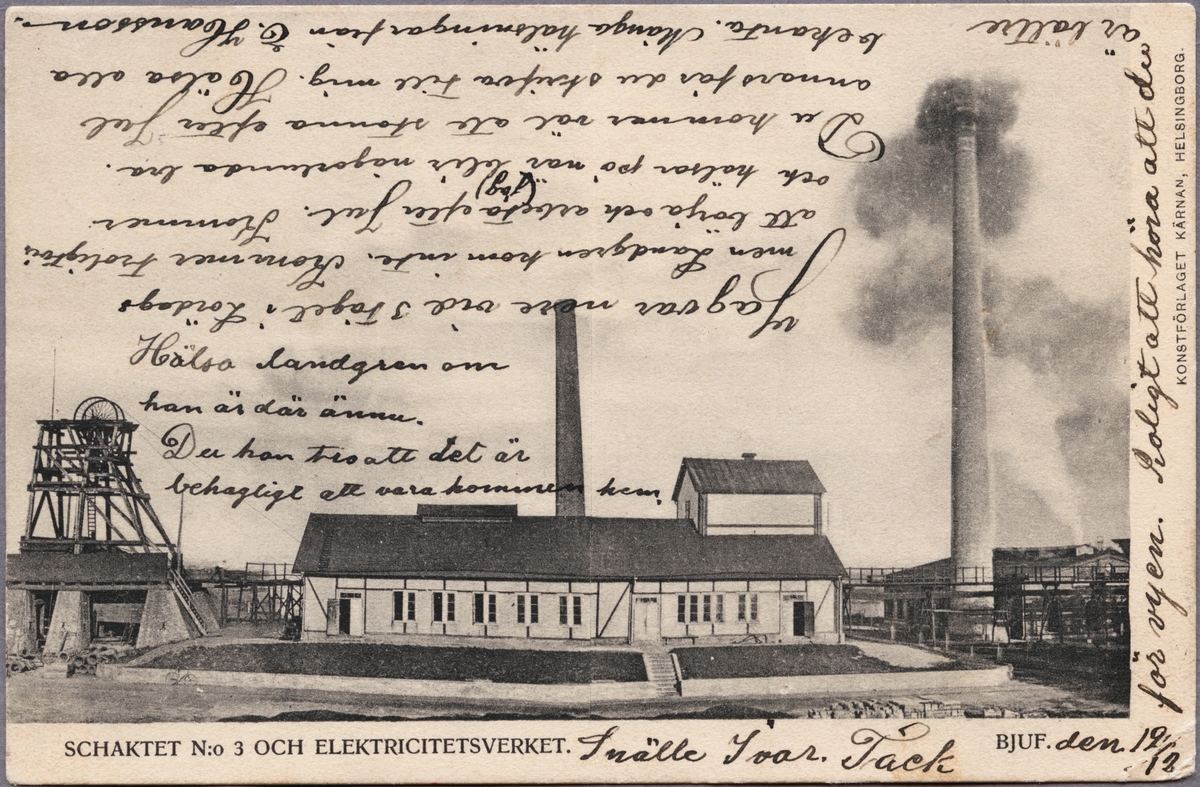 SCHAKTET N:o 3 OCH ELEKTRICITETSVERKET.
BJUF. den 19/12
Snälle Ivar. Tack
för vyen. Roligt att höra att du
är bättre
Jag var nere vid 3 tåget i Lördags
men Landgren kom inte. Kommer troligtvis
att börja och arbeta efter Jul. Kommer
(jag)
och hälsar på när blir någorlunda bra.
Du kommer väl att stanna efter Jul
annars får du skrifva till mig. Hälsa alla
bekanta. Många hälsningar från E. Hansson.
Hälsa landgren om
han är där ännu.
Du kan tro att det är
behagligt att vara kommen hem
KONSTFÖRLAGET KÄRNAN, HELSINGBORG.